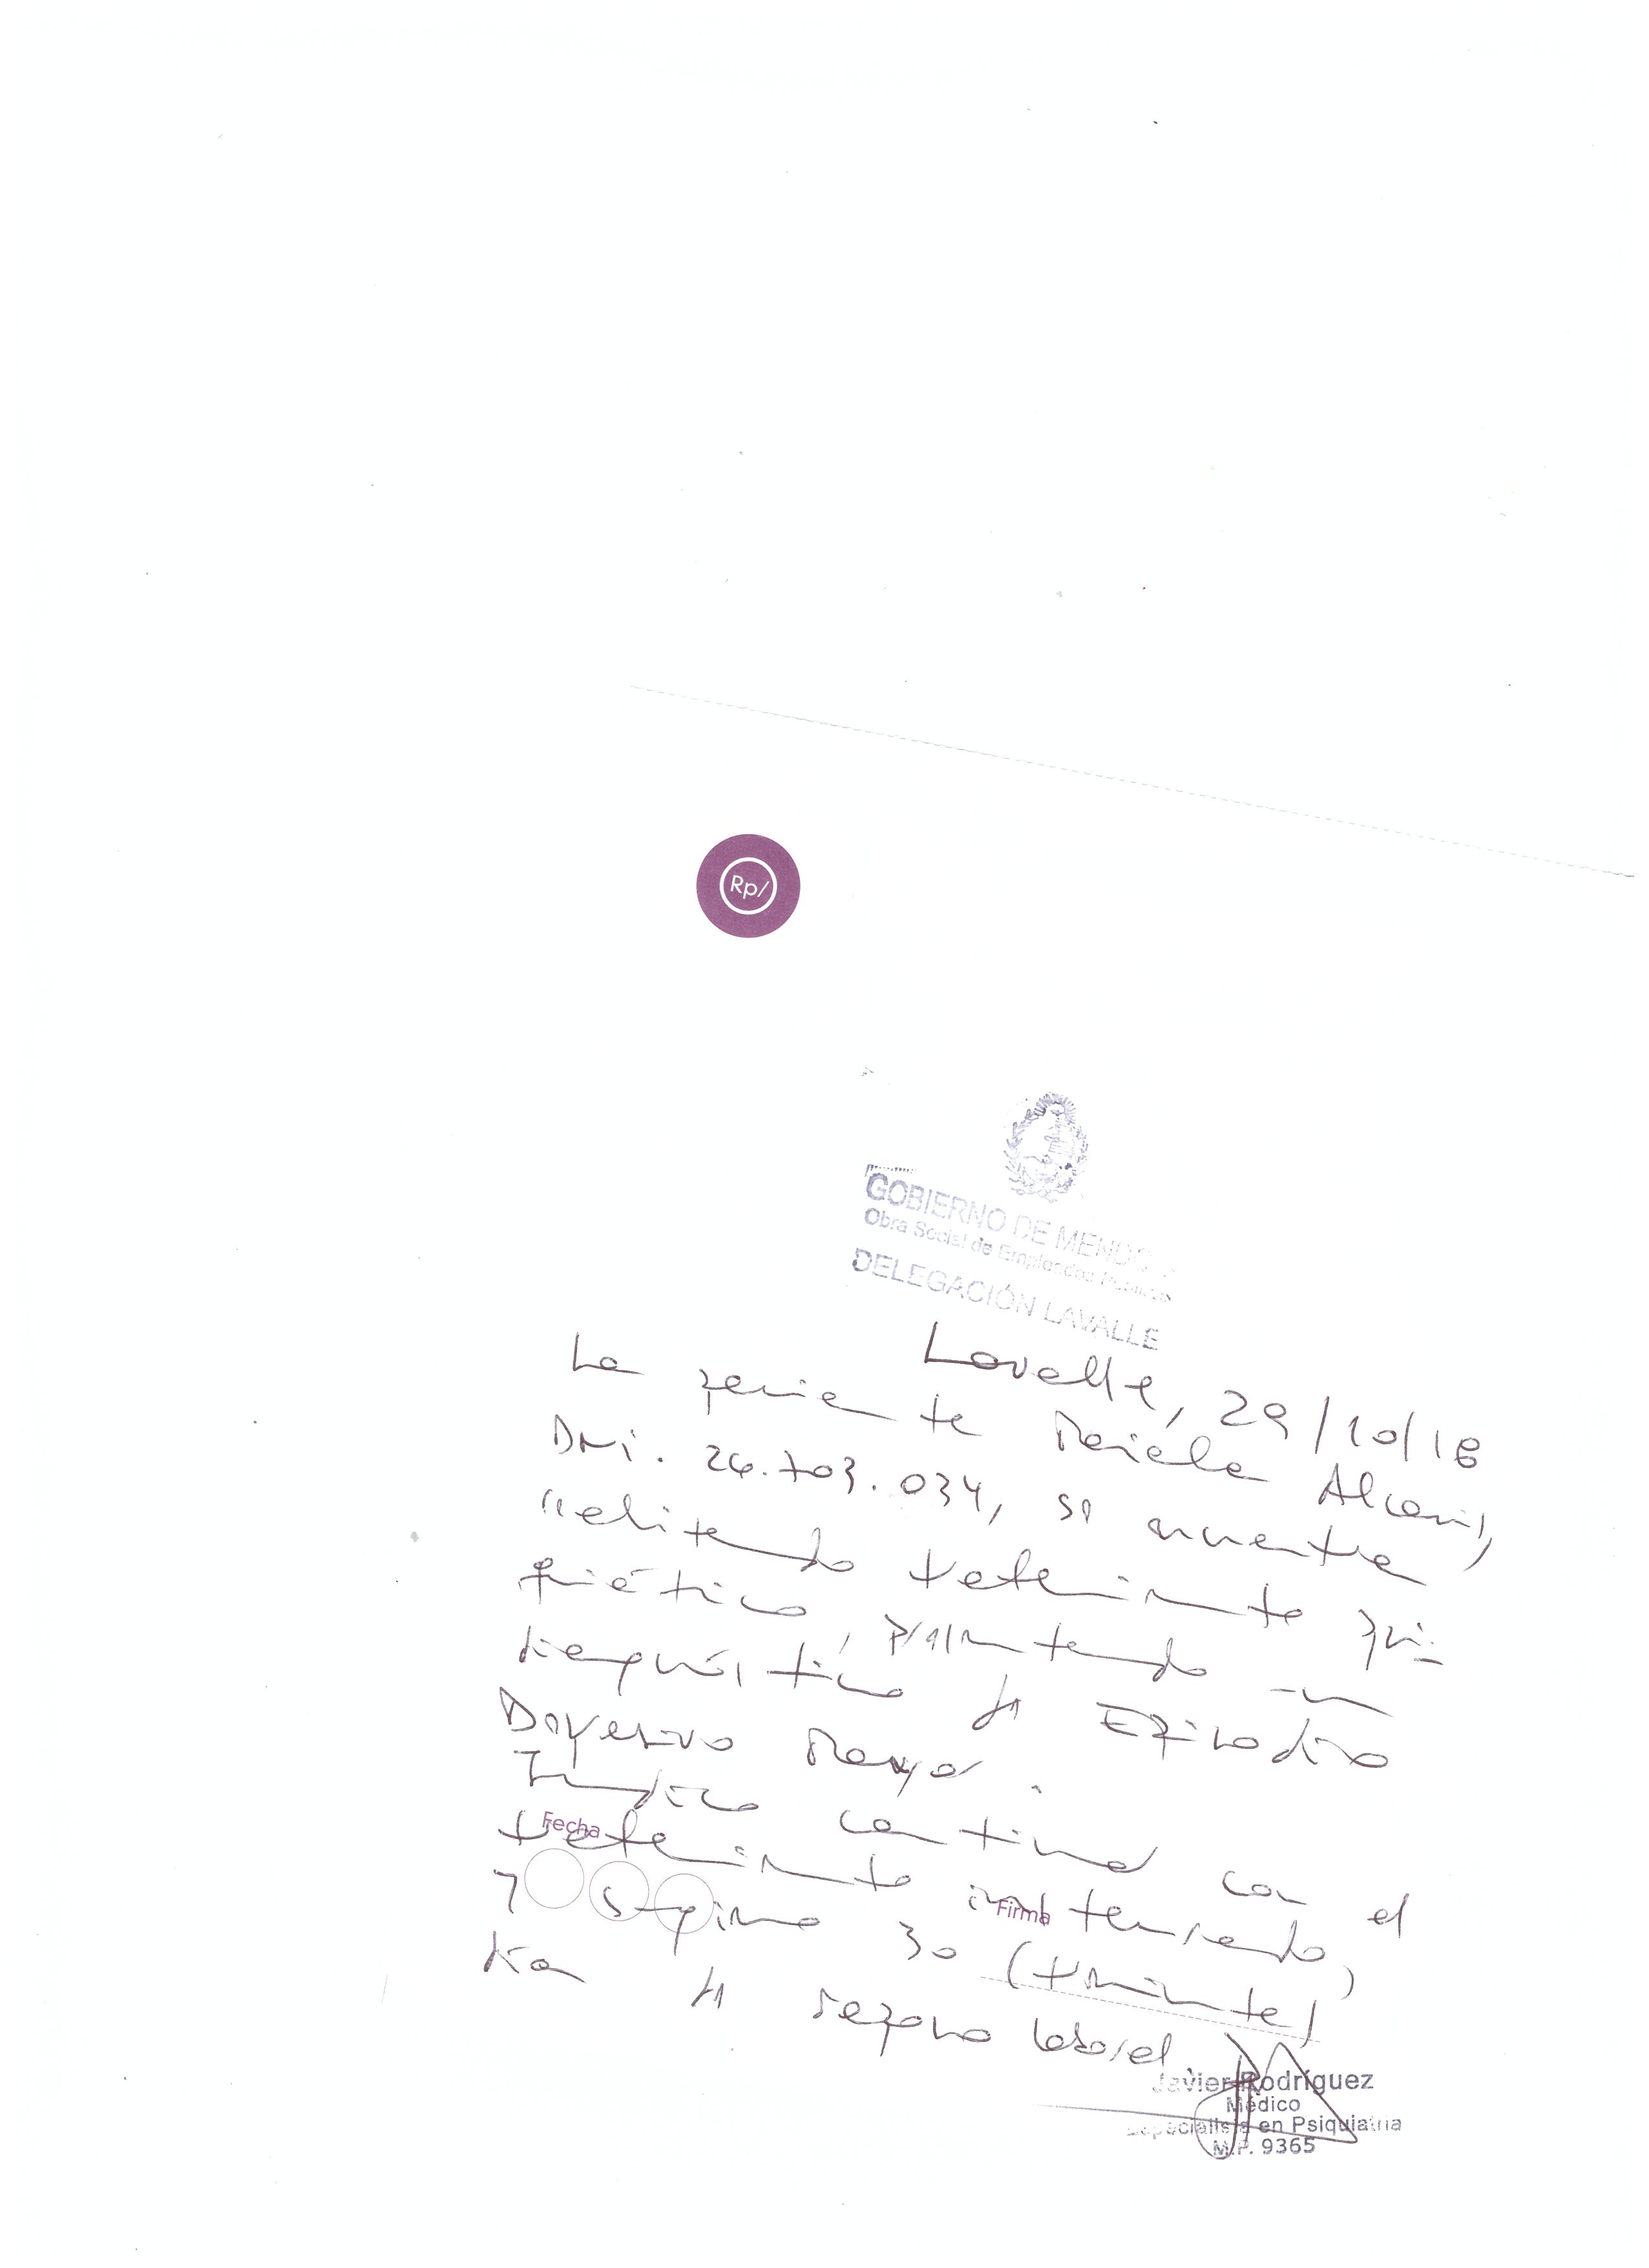 Rp/
GOBIERNO DE MENDOZA
Obra Social de Empleados Públicos
DELEGACIÓN LAVALLE
Lavalle, 29/10/18
La paciente Mariela
DNI. 26.703.034, se encuentra
realitando tratamiento psi-
quiátrico, presentando un
diagnóstico de Episodio
Depresivo Mayor.
Indico continuar con el
Fecha
tratamiento instaurado,
Firma
y sugiero 30 (treinta)
días de reposo laboral
Javier Rodríguez
Médico
Especialista en Psiquiatría
M.P. 9365